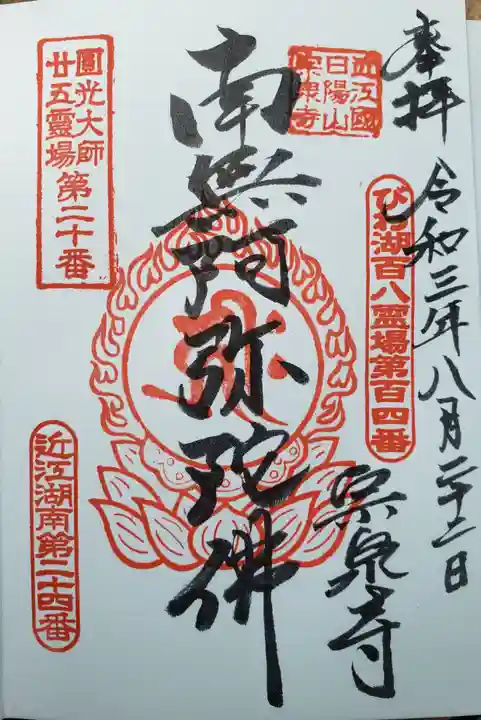 奉拝
令和三年八月二十二日
近江國
日陽山
宗泉寺
びわ湖百八霊場第百四番
南無阿弥陀佛
宗泉寺
圓光大師
廿五靈場第二十番
近江湖南第二十四番